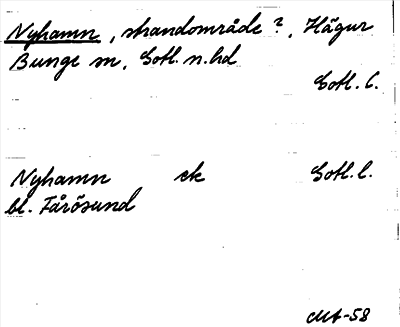 Nyhamn, strandområde?, Hägur
Bunge sn, Gotl. n. hd
Gotl. l.
Nyhamn ek Gotl. l.
bl. Fårösund
MA-58